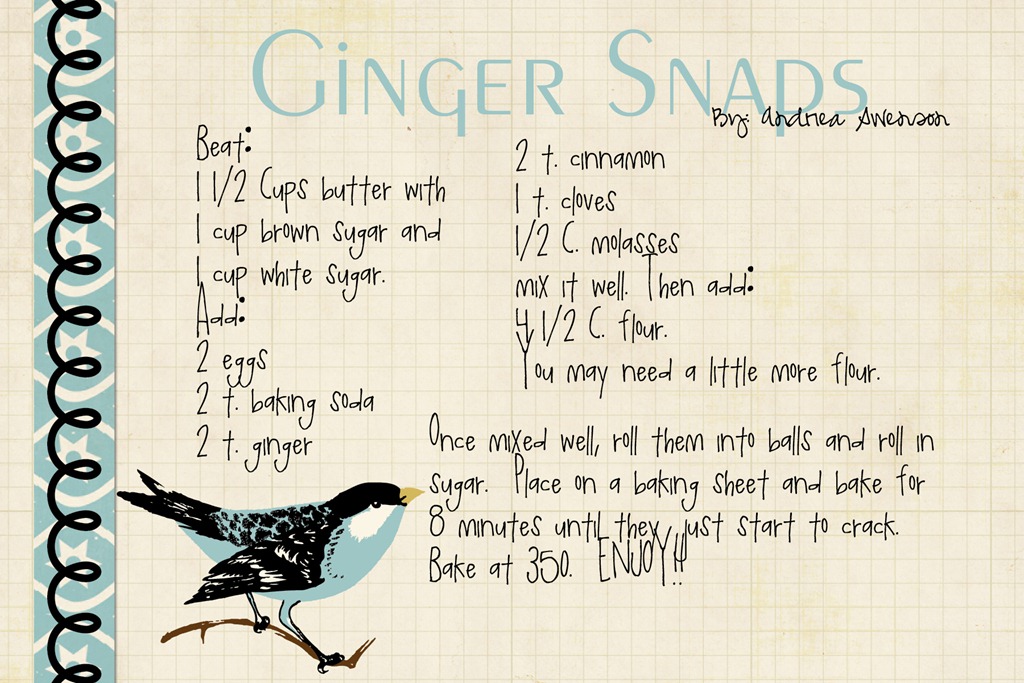 Ginger Snaps
By: Andrea Swenson
Beat:
1 1/2 Cups butter with
1 cup brown sugar and
1 cup white sugar.
Add:
2 eggs
2 t. baking soda
2 t. ginger
2 t. cinnamon
1 t. cloves
1/2 C. molasses
mix it well. Then add:
4 1/2 C. flour.
You may need a little more flour.
Once mixed well, roll them into balls and roll in
sugar. Place on a baking sheet and bake for
8 minutes until they just start to crack.
Bake at 350. ENJOY!!